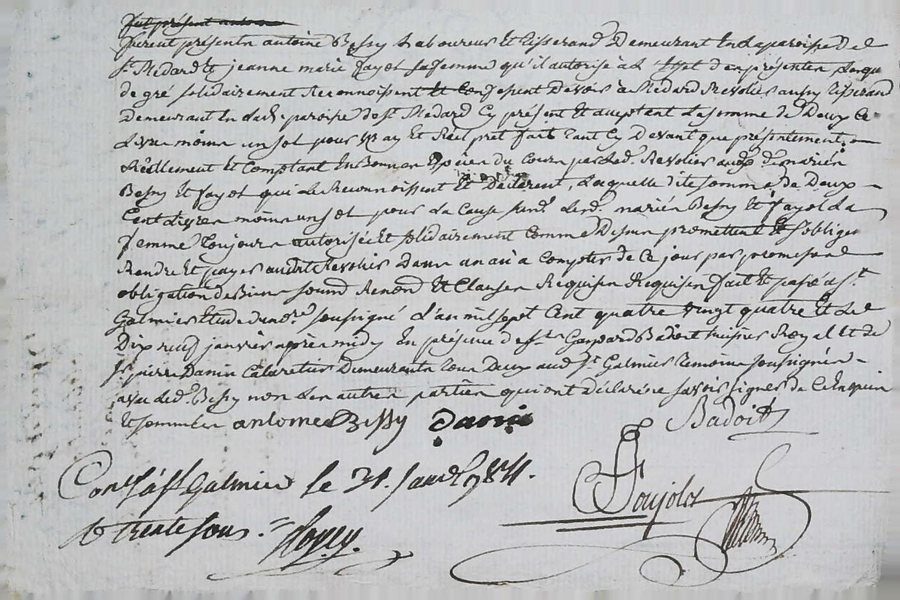 Furent présents antoine Bessy Laboureur et tisserand demeurant en la paroisse de
St. Medard et jeanne marie fayol sa femme qu'il autorise à l'effet des présentes lesquels
de gré solidairement Reconnoissent et Confessent devoir à Médard Revolier aussy tisserand
demeurant en lad. paroisse de St. Medard Cy présent et acceptant la somme de Deux Cent
Livres moins un sol pour vray et Réel prêt fait tant Cy devant que présentement
Réellement et Comptant en Bonnes Especes du Cours par led. Revolier auxd. mariés
Bessy et fayol qui le Reconnoissent et Déclarent, Laquelle dite somme de Deux
Cent Livres moins un sol pour la Cause susd. lesd. mariés Bessy et fayol la
femme toujours autorisée et solidairement comme dessus promettent et s'obligent
Rendre et payer audit Revolier dans un an à Compter de Ce jour par promesse
obligation de Biens soumd. Renond. et Clauses Requises fait et passé à St.
Galmier Etude du no.re soussigné l'an mil sept Cent quatre vingt quatre et Le
Dix neuf janvier après midy En présence de Sr. Gaspard Badoit huissier Royal et de
Sr. pierre Danis Cabaretier Demeurants tous Deux aud. St. Galmier temoins soussignés
avec led. Bessy non les autres parties qui ont déclaré ne savoir signer de Ce Enquis
et sommées antoine Bessy Danis
Badoit
Conté à St. Galmier le 31. janv. 1784.
R trente sous.
Poujolos